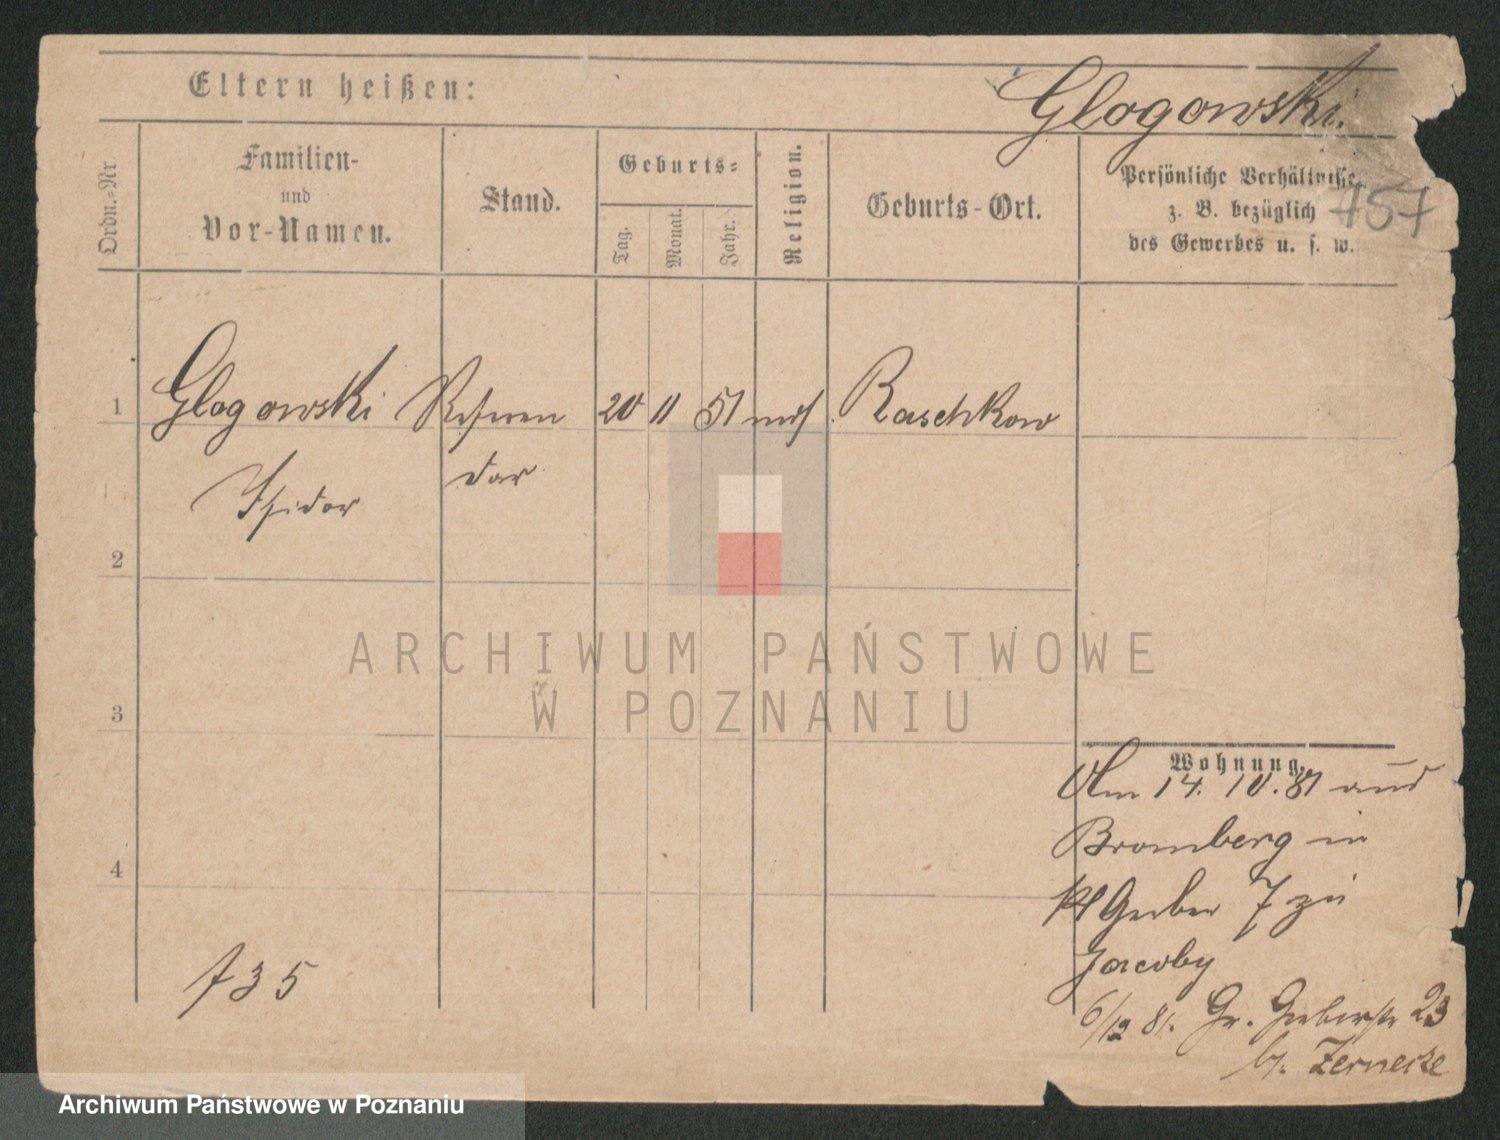 Eltern heißen:
Glogowski.
Ordn.-Nr
Familien-
und
Vor-Namen.
Stand.
Geburts-
Tag.
Monat.
Jahr.
Religion.
Geburts-Ort.
Persönliche Verhältnisse,
z. B. bezüglich
des Gewerbes u. s. w.
757
1 Glogowski Referen 20 11 51 mos Raschkow
Isidor dar
2
3
4
ARCHIWUM PAŃSTWOWE
W POZNANIU
Wohnung.
Am 14. 10. 81 aus
Bromberg in
Kl Gerber 7 zu
Jacoby
6/12 81. Gr. Gerberstr 23
b. Zernecke
735
Archiwum Państwowe w Poznaniu